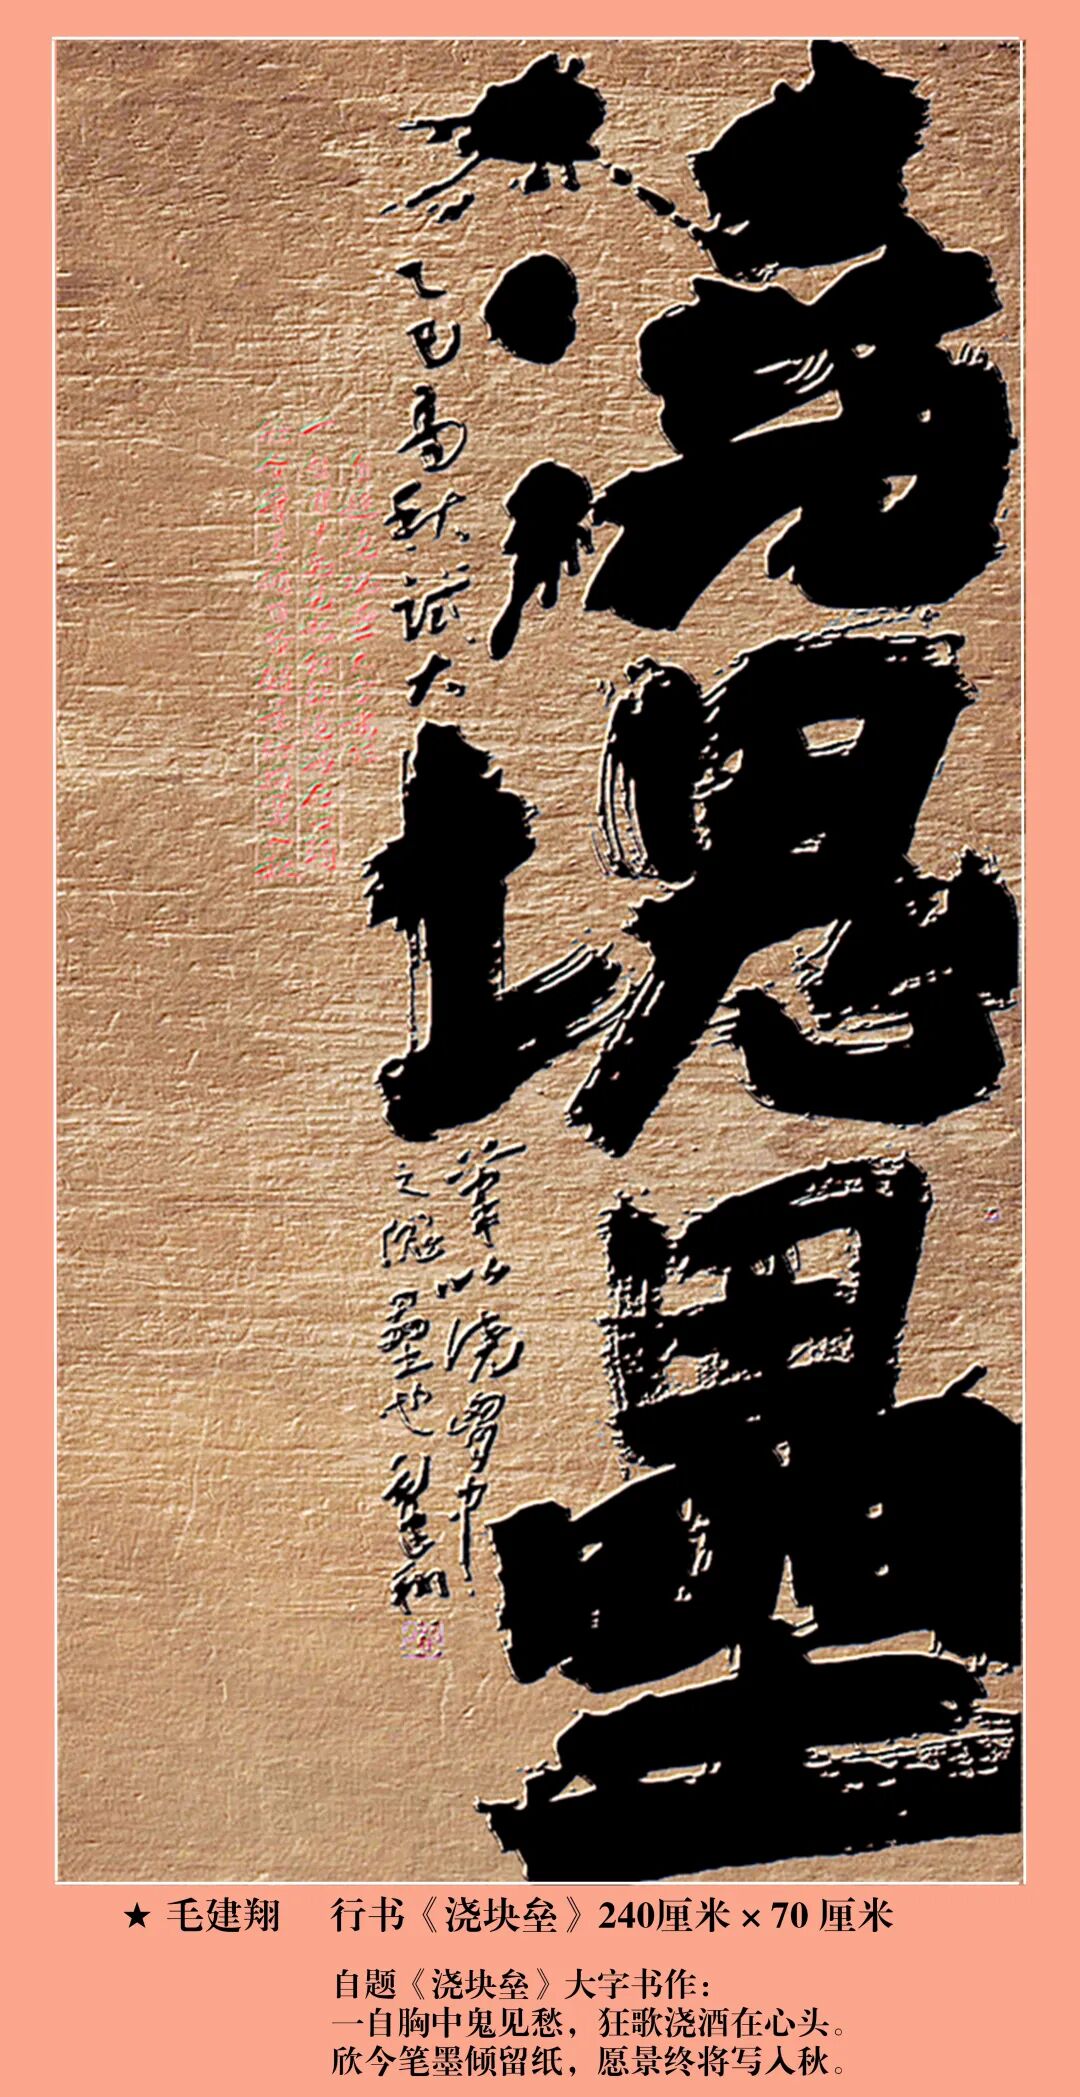 澆塊壘
乙巳高秋试大
筆以澆胸中
之塊壘也 毛建翔
★ 毛建翔 行书《浇块垒》240厘米 × 70 厘米
自题《浇块垒》大字书作：
一自胸中鬼见愁，狂歌浇酒在心头。
欣今笔墨倾留纸，愿景终将写入秋。